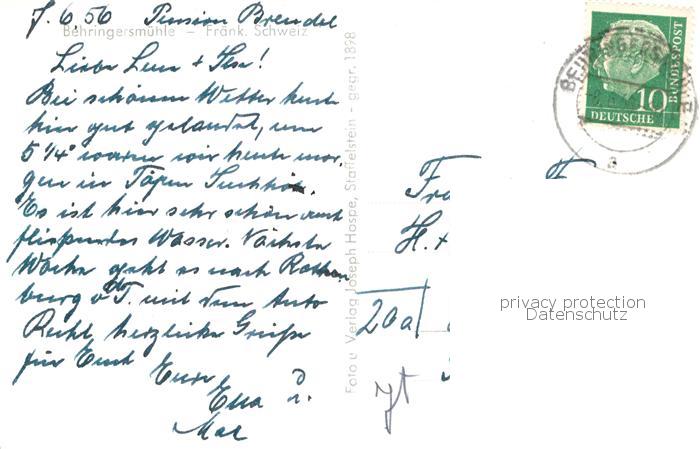 7.6.56 Pension Brendel
Behringersmühle – Fränk. Schweiz
Liebe Lene + Ilse!
Bei schönem Wetter heute
hier gut gelandet, um
5 1/4° waren wir heute mor-
gen in Töpen Juchhöh.
Es ist hier sehr schön auch
fließendes Wasser. Nächste
Woche geht es nach Rothen
burg o/d T. mit dem Auto
Recht herzliche Grüße
für Euch
Eure
Ella u.
Max
Foto u. Verlag Joseph Haspe, Staffelstein – gegr. 1898
BUNDESPOST
10
DEUTSCHE
BEHRINGERSMÜHLE
a
Fra
H. +
20a
privacy protection
Datenschutz